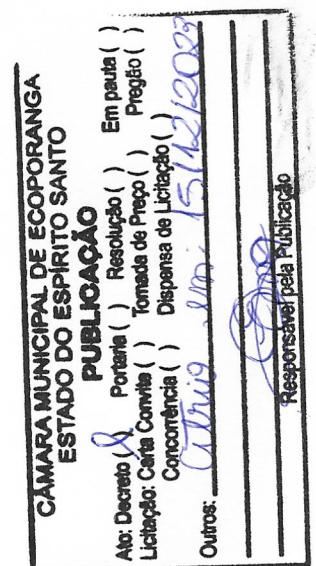 CÂMARA MUNICIPAL DE ECOPORANGA
ESTADO DO ESPÍRITO SANTO
PUBLICAÇÃO
Ato: Decreto ( ) Portaria ( ) Resolução ( ) Em pauta ( )
Licitação: Carta Convite ( ) Tomada de Preço ( ) Pregão ( )
Concorrência ( ) Dispensa de Licitação ( )
Outros: em 15/12/2023
Responsável pela Publicação